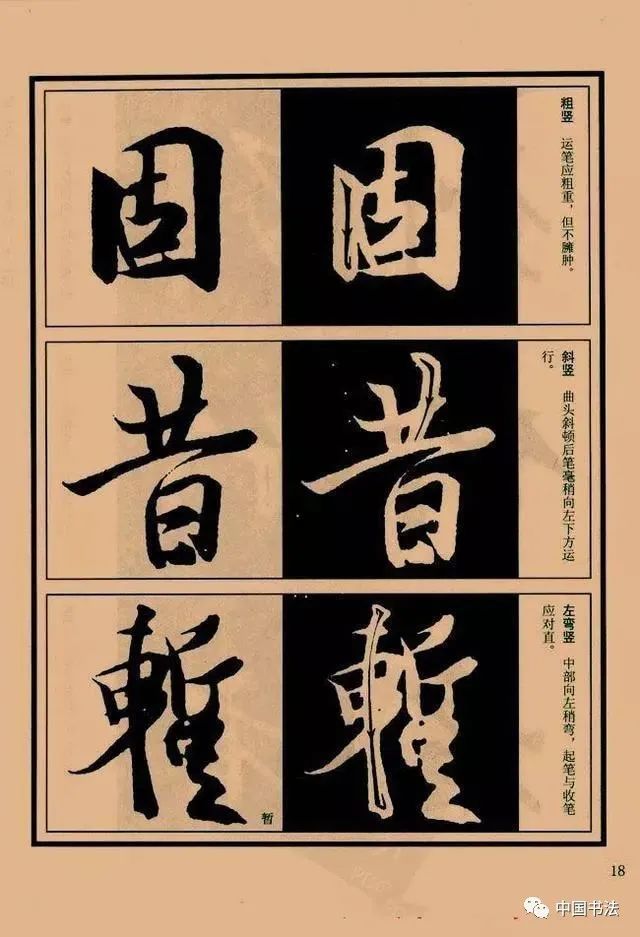 粗竖 运笔应粗重，但不臃肿。
固
固
斜竖 曲头斜顿后笔毫稍向左下方运
行。
昔
昔
左弯竖 中部向左稍弯，起笔与收笔
应对直。
蹔
蹔
暂
18
中国书法